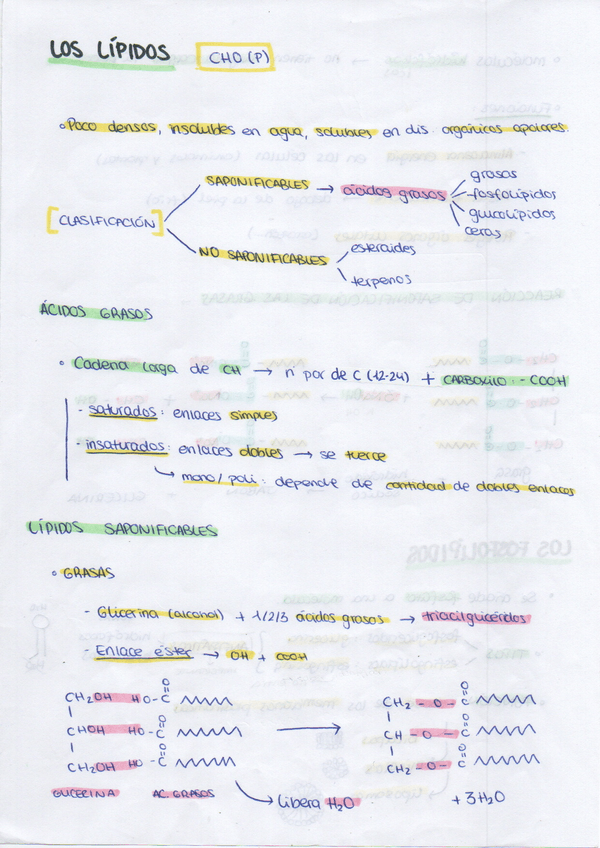 LOS LÍPIDOS CHO (P)
• Poco densos, insolubles en agua, solubles en dis. orgánicos apolares.
SAPONIFICABLES → ácidos grasos
grasas
fosfolípidos
glucolípidos
ceras
[CLASIFICACIÓN]
NO SAPONIFICABLES
esteroides
terpenos
ÁCIDOS GRASOS
• Cadena larga de CH → nº par de C (12-24) + CARBOXILO: -COOH
- saturados: enlaces simples
- insaturados: enlaces dobles → se tuerce
↳ mono/poli: depende de cantidad de dobles enlaces
LÍPIDOS SAPONIFICABLES
• GRASAS
- Glicerina (alcohol) + 1/2/3 ácidos grasos → triacilglicéridos
- Enlace éster → OH + COOH
CH2OH HO-C=O
CHOH HO-C=O
CH2OH HO-C=O
GLICERINA AC. GRASOS
→
CH2-O-C=O
CH-O-C=O
CH2-O-C=O
↳ Libera H2O + 3H2O